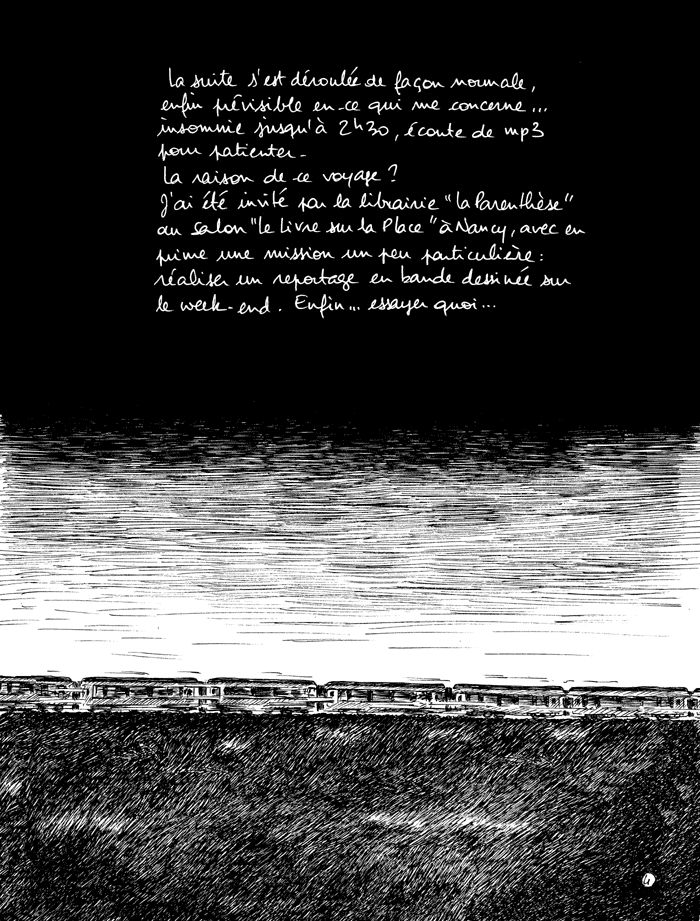 La suite s'est déroulée de façon normale,
enfin prévisible en ce qui me concerne...
insomnie jusqu'à 2h30, écoute de mp3
pour patienter.
La raison de ce voyage ?
J'ai été invité par la librairie "la Parenthèse"
au salon "le Livre sur la Place" à Nancy, avec en
prime une mission un peu particulière :
réaliser un reportage en bande dessinée sur
le week-end. Enfin... essayer quoi...